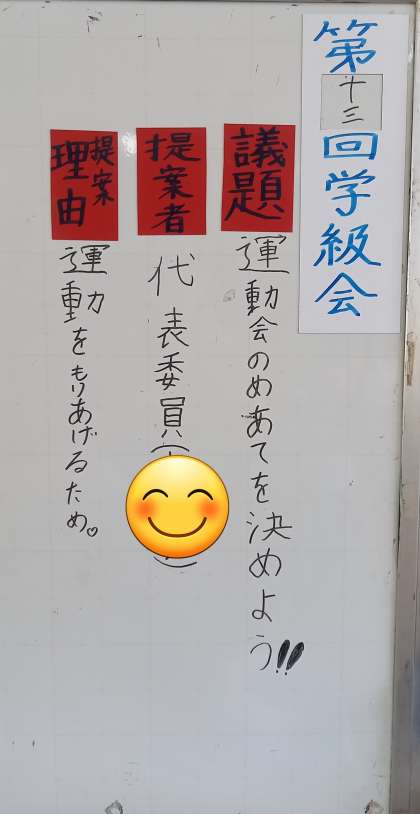 第十三回学級会
議題
運動会のめあてを決めよう!!
提案者
代表委員(
)
提案理由
運動をもりあげるため。